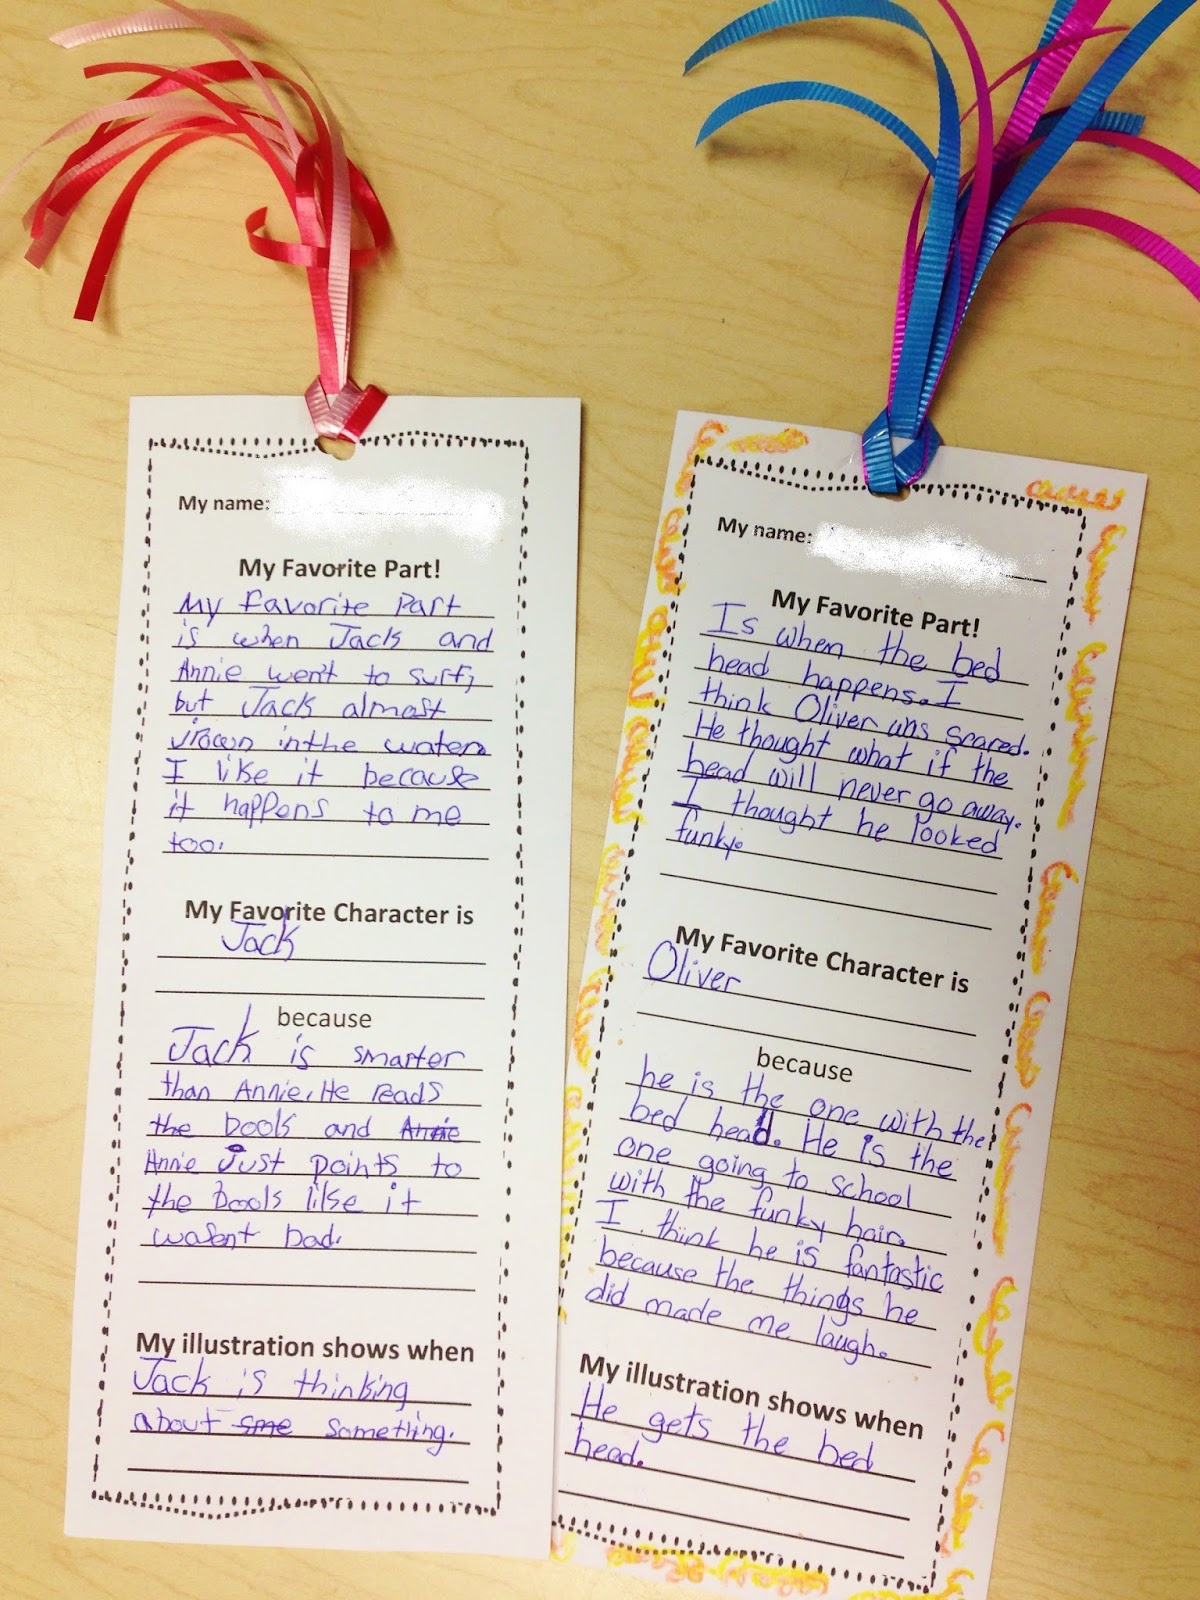 My name:
My Favorite Part!
My favorite Part
is when Jack and
Annie went to surf,
but Jack almost
drown in the water.
I like it because
it happens to me
too.
My Favorite Character is
Jack
because
Jack is smarter
than Annie. He reads
the books and Annie
Annie Just points to
the books like it
wasent bad.
My illustration shows when
Jack is thinking
about sme something.
My name:
My Favorite Part!
Is when the bed
head happens. I
think Oliver was scared.
He thought what if the
head will never go away.
I thought he looked
funky.
My Favorite Character is
Oliver
because
he is the one with the
bed head. He is the
one going to school
with the funky hair.
I think he is fantastic
because the things he
did made me laugh.
My illustration shows when
He gets the bed
head.